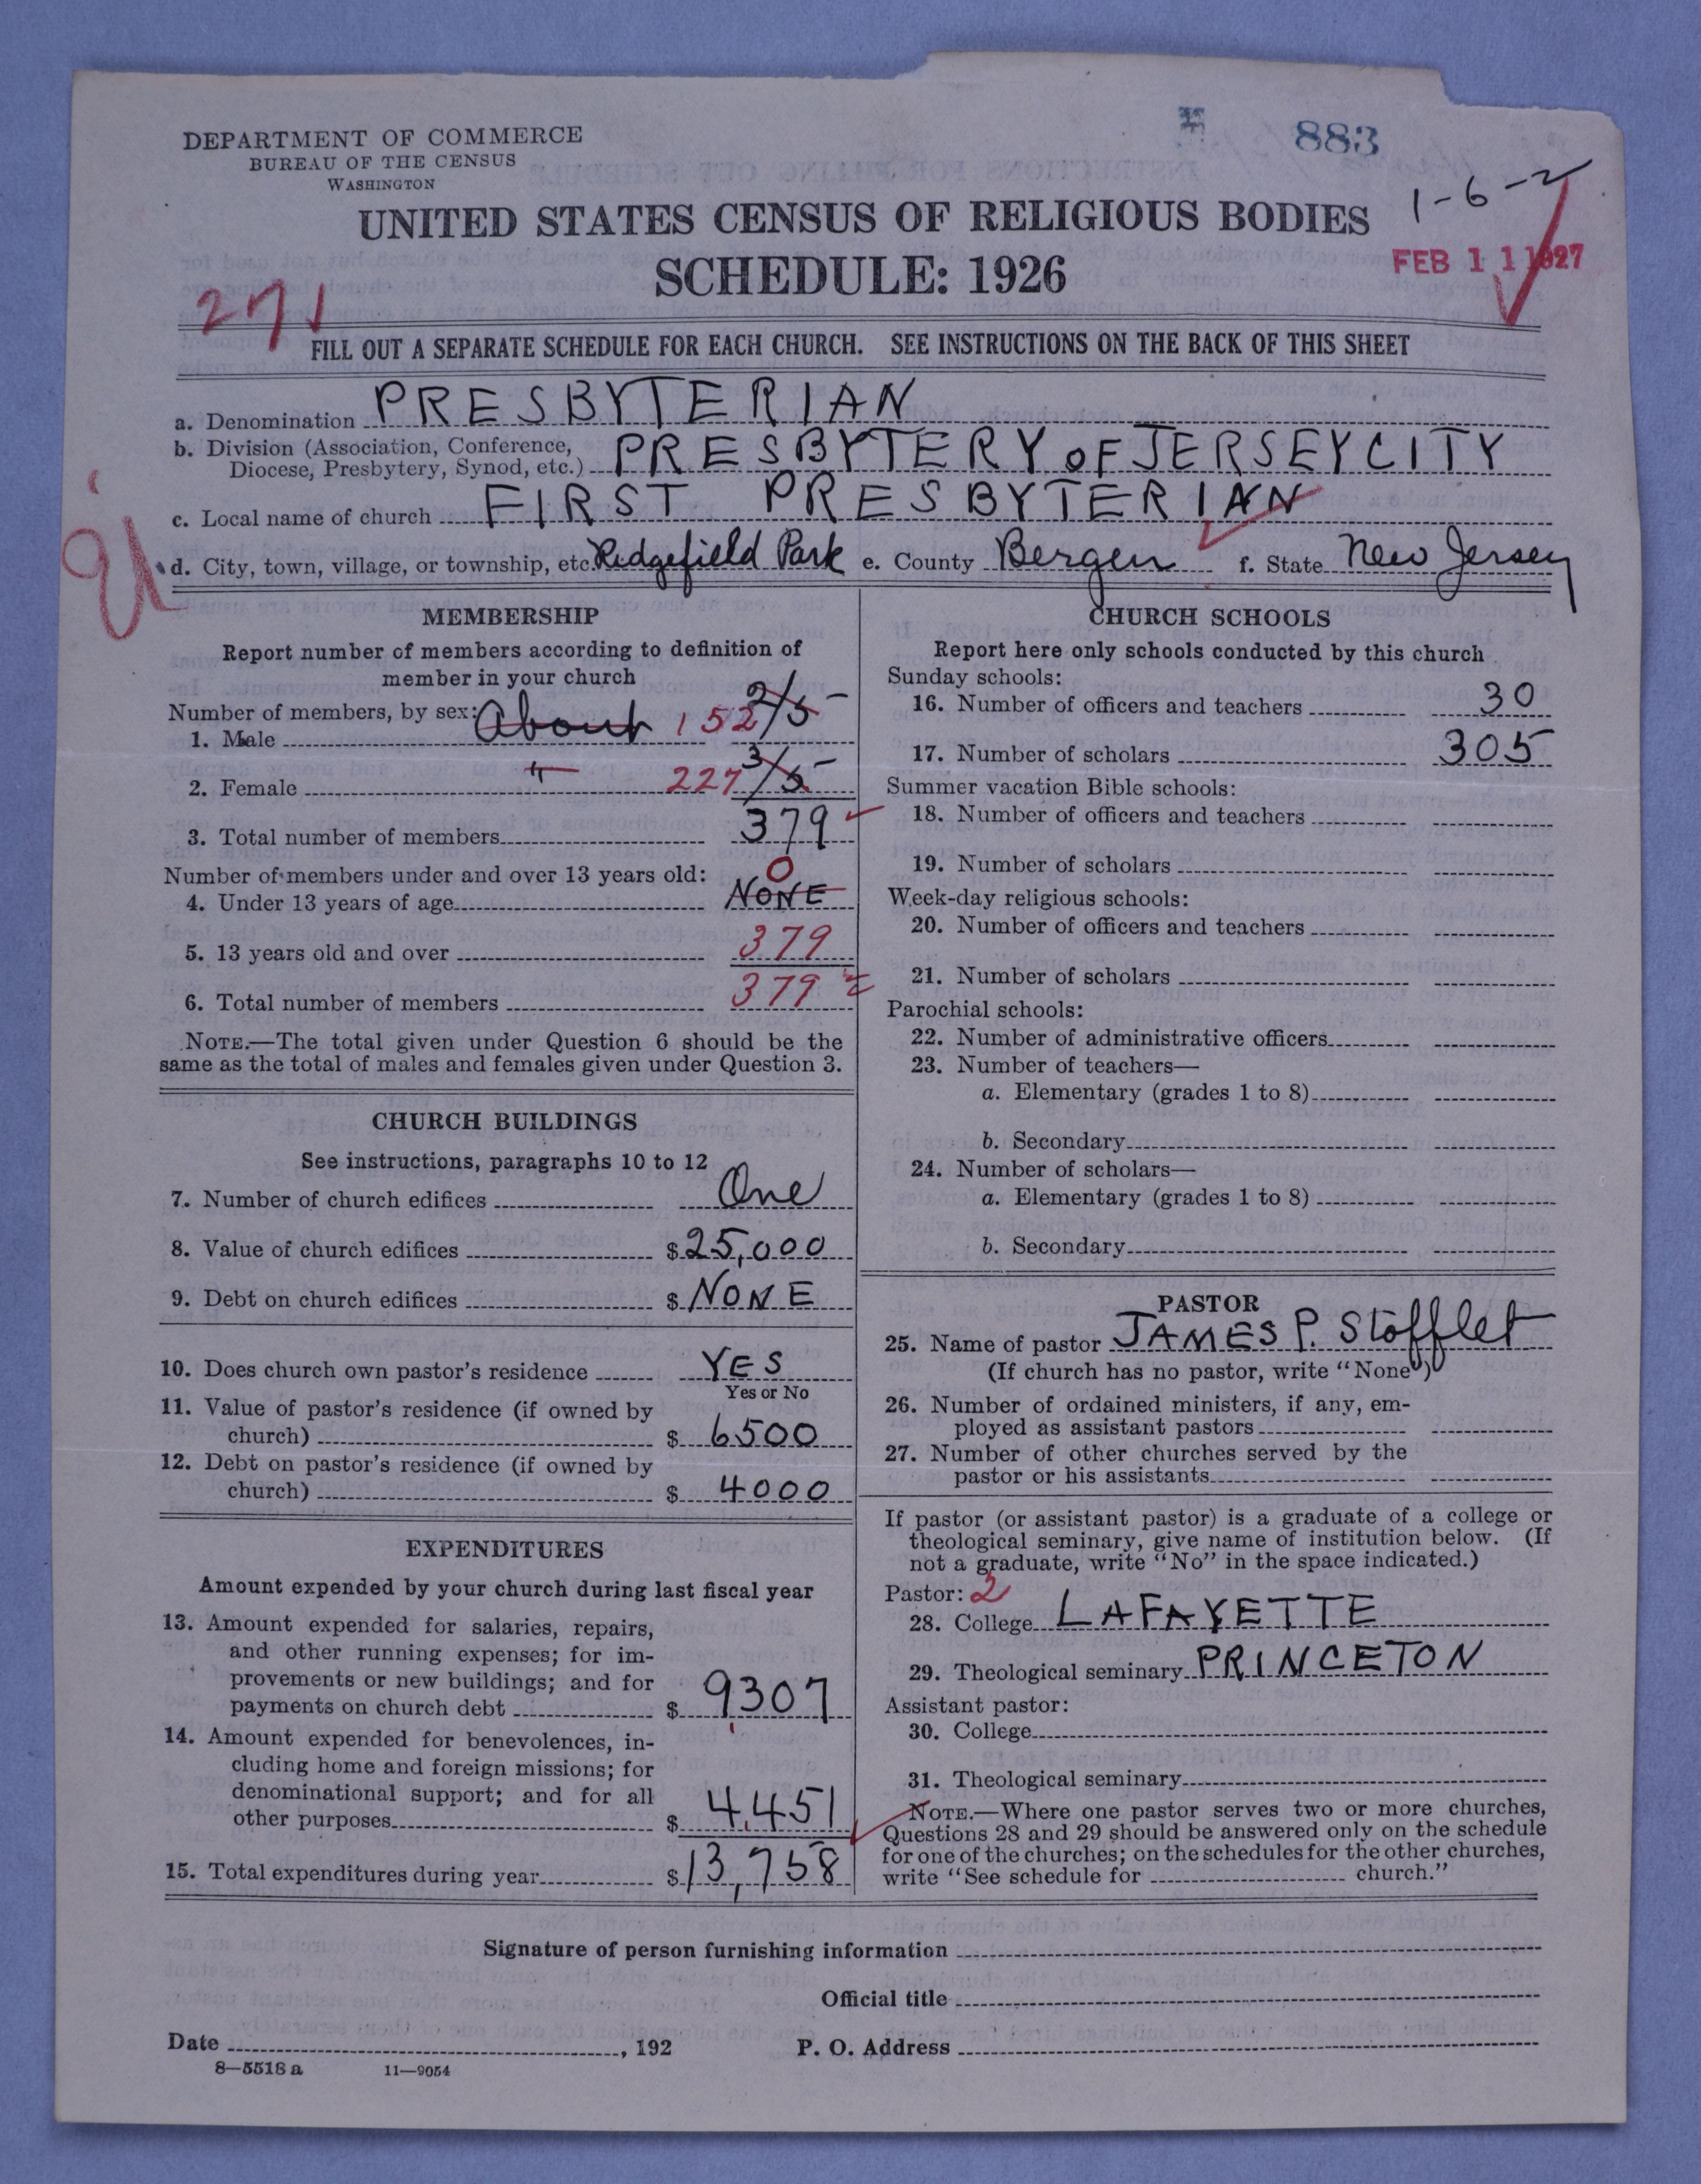 883
DEPARTMENT OF COMMERCE
BUREAU OF THE CENSUS
WASHINGTON
1-6-2
UNITED STATES CENSUS OF RELIGIOUS BODIES
SCHEDULE: 1926
FEB 11 1927
271
FILL OUT A SEPARATE SCHEDULE FOR EACH CHURCH. SEE INSTRUCTIONS ON THE BACK OF THIS SHEET
a. Denomination PRESBYTERIAN
b. Division (Association, Conference,
Diocese, Presbytery, Synod, etc.) PRESBYTERY OF JERSEY CITY
c. Local name of church FIRST PRESBYTERIAN
d. City, town, village, or township, etc. Ridgefield Park e. County Bergen f. State New Jersey
MEMBERSHIP
Report number of members according to definition of
member in your church
Number of members, by sex:
1. Male About 152 2/5
2. Female " 227 3/5
3. Total number of members 379
Number of members under and over 13 years old:
4. Under 13 years of age NONE 0
5. 13 years old and over 379
6. Total number of members 379
NOTE.—The total given under Question 6 should be the
same as the total of males and females given under Question 3.
CHURCH BUILDINGS
See instructions, paragraphs 10 to 12
7. Number of church edifices One
8. Value of church edifices $25,000
9. Debt on church edifices $ NONE
10. Does church own pastor's residence YES
Yes or No
11. Value of pastor's residence (if owned by
church) $ 6500
12. Debt on pastor's residence (if owned by
church) $ 4000
EXPENDITURES
Amount expended by your church during last fiscal year
13. Amount expended for salaries, repairs,
and other running expenses; for im-
provements or new buildings; and for
payments on church debt $ 9307
14. Amount expended for benevolences, in-
cluding home and foreign missions; for
denominational support; and for all
other purposes $ 4,451
15. Total expenditures during year $13,758
CHURCH SCHOOLS
Report here only schools conducted by this church
Sunday schools:
16. Number of officers and teachers 30
17. Number of scholars 305
Summer vacation Bible schools:
18. Number of officers and teachers
19. Number of scholars
Week-day religious schools:
20. Number of officers and teachers
21. Number of scholars
Parochial schools:
22. Number of administrative officers
23. Number of teachers—
a. Elementary (grades 1 to 8)
b. Secondary
24. Number of scholars—
a. Elementary (grades 1 to 8)
b. Secondary
PASTOR
25. Name of pastor JAMES P. Stofflet
(If church has no pastor, write "None")
26. Number of ordained ministers, if any, em-
ployed as assistant pastors
27. Number of other churches served by the
pastor or his assistants
If pastor (or assistant pastor) is a graduate of a college or
theological seminary, give name of institution below. (If
not a graduate, write "No" in the space indicated.)
Pastor: 2
28. College LAFAYETTE
29. Theological seminary PRINCETON
Assistant pastor:
30. College
31. Theological seminary
NOTE.—Where one pastor serves two or more churches,
Questions 28 and 29 should be answered only on the schedule
for one of the churches; on the schedules for the other churches,
write "See schedule for church."
Signature of person furnishing information
Official title
Date , 192
P. O. Address
8—5518 a 11—9054